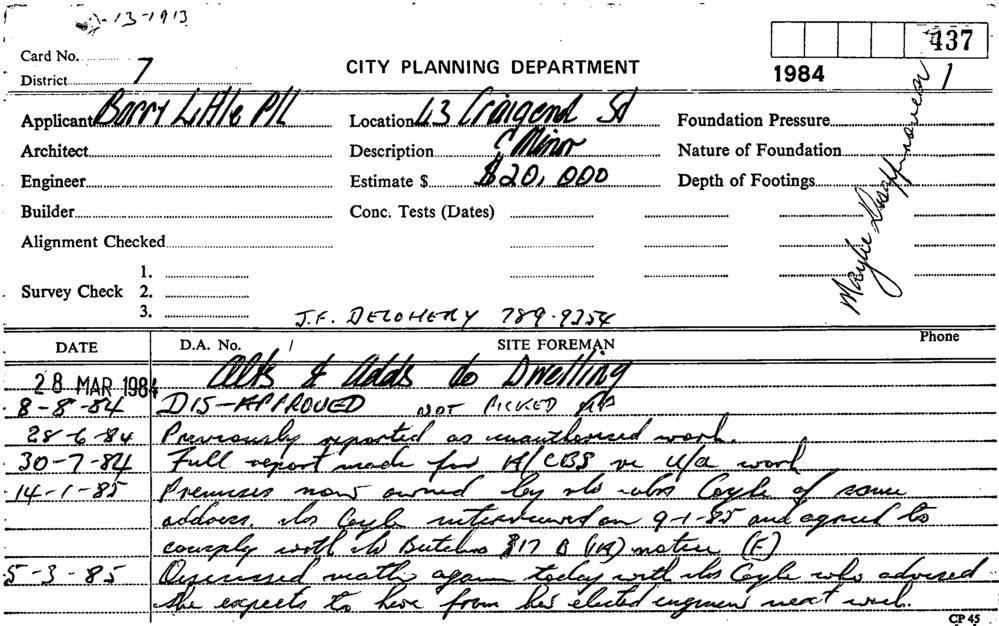 -13-1913
437
Card No. 7
District
CITY PLANNING DEPARTMENT
1984 / 1
Applicant Barry Little P/L
Location 43 Craigend St
Foundation Pressure
Architect
Description C Minor
Nature of Foundation
Engineer
Estimate $ $20,000
Depth of Footings
Builder
Conc. Tests (Dates)
Alignment Checked
Survey Check 1.
2.
3.
J.F. DELOHERY 789-9254
DATE D.A. No. / SITE FOREMAN Phone
28 MAR 1984 Alts & Adds to Dwelling
8-8-84 DIS-APPROVED NOT PICKED UP
28-6-84 Previously reported as unauthorised work.
30-7-84 Full report made for H/CBS re U/a work
14-1-85 Premises now owned by Coyle of same
address. Mrs Coyle interviewed on 9-1-85 and agreed to
comply with 317 B (1A) notice (F)
5-3-85 Discussed matter again today with Mrs Coyle who advised
she expects to have from her elected engineer next week.
CP 45